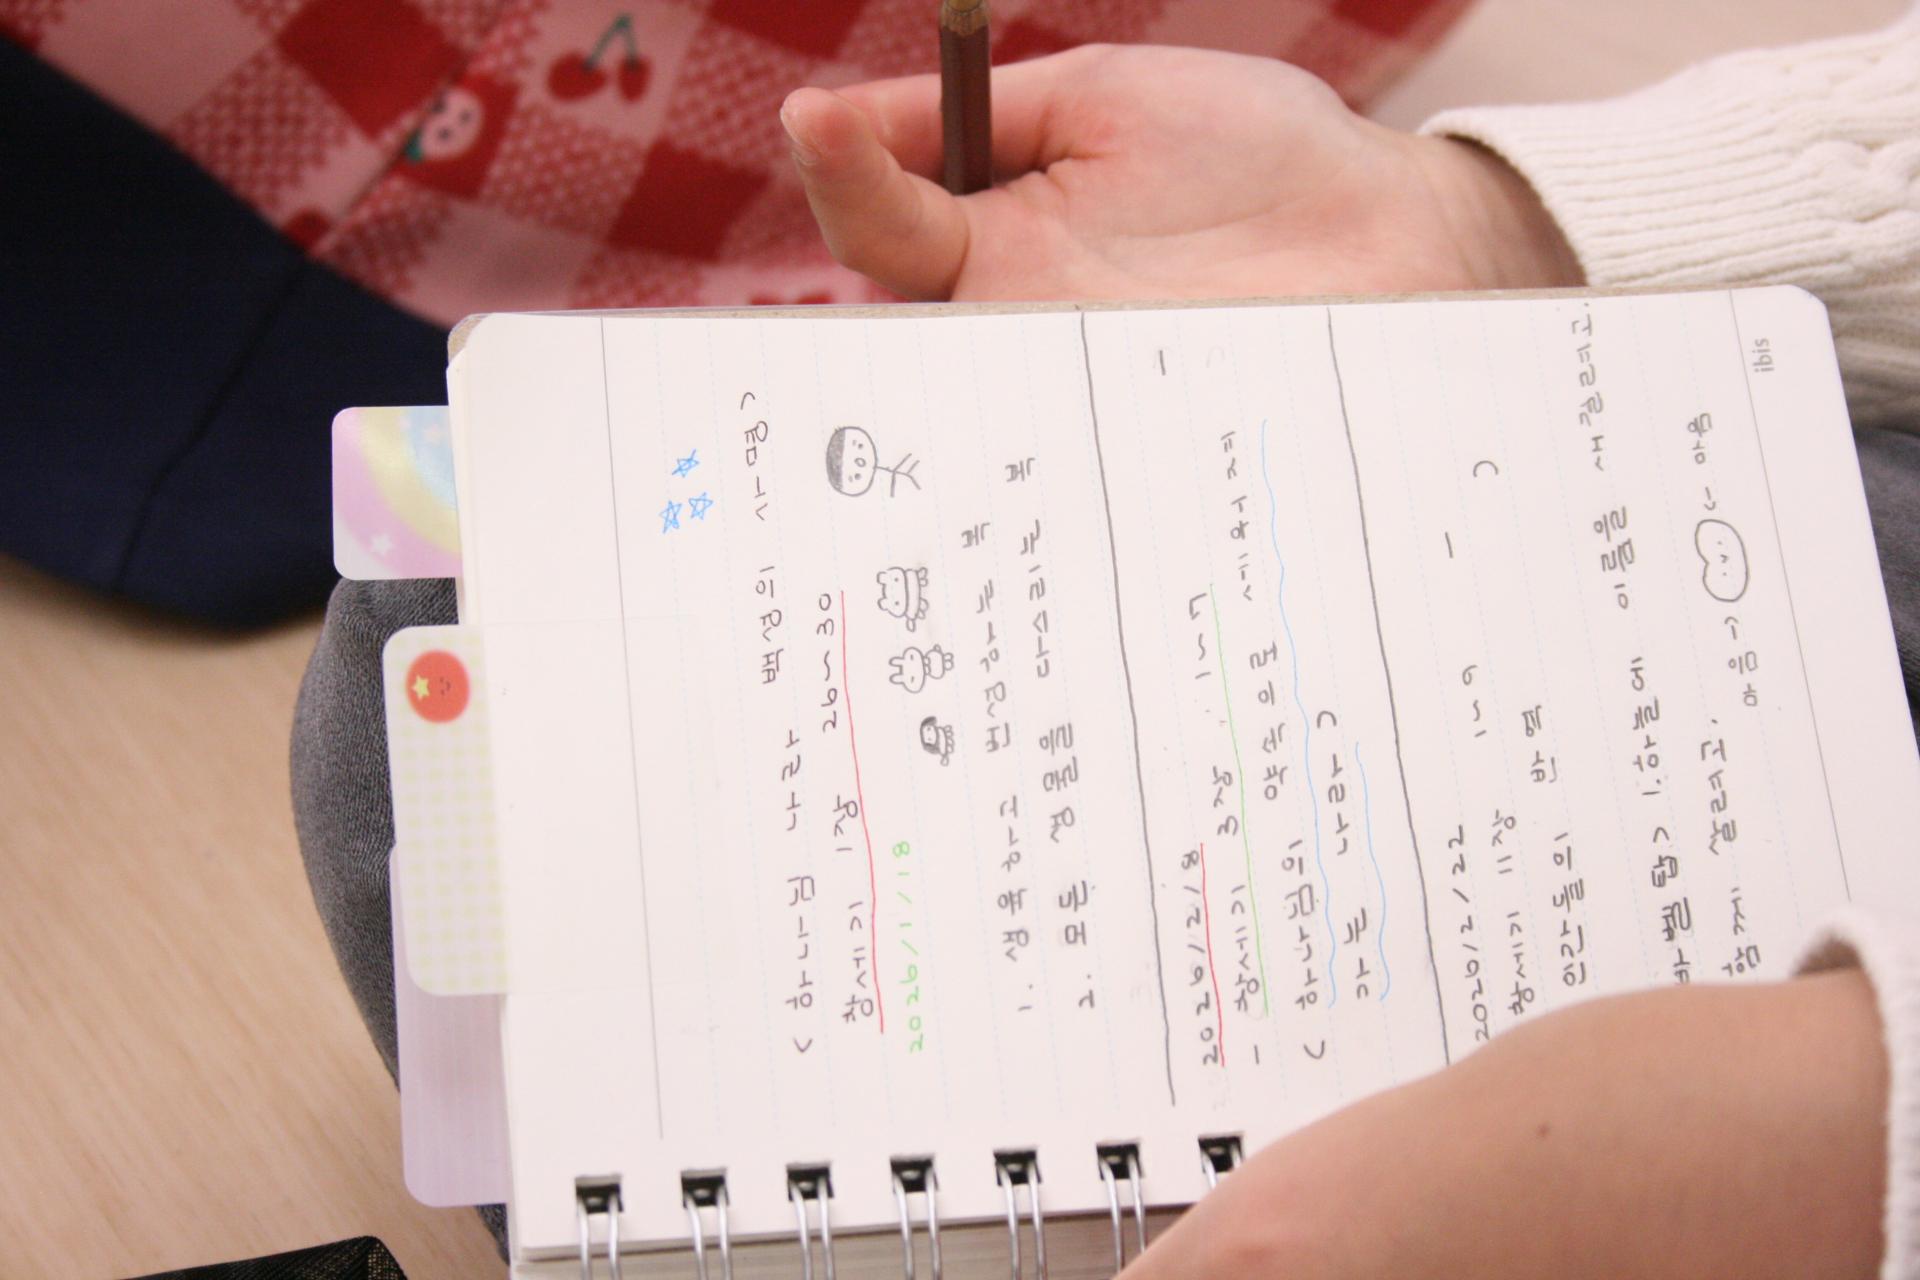 < 하나님 나라 백성의 사명 >
창세기 1장 26~30
2026/1/18
1. 생육하고 번성하는 복
2. 모든 생물을 다스리는 복
2026/2/8
- 창세기 3장 1~7 -
( 하나님의 약속으로 세워져
가는 나라 )
2026/2/22
창세기 11장 1~9 -
인간들의 반역 )
바벨탑> 1.하늘에 이름을 새길려고.
함께 살려고.
마음→ ←마음
ibis